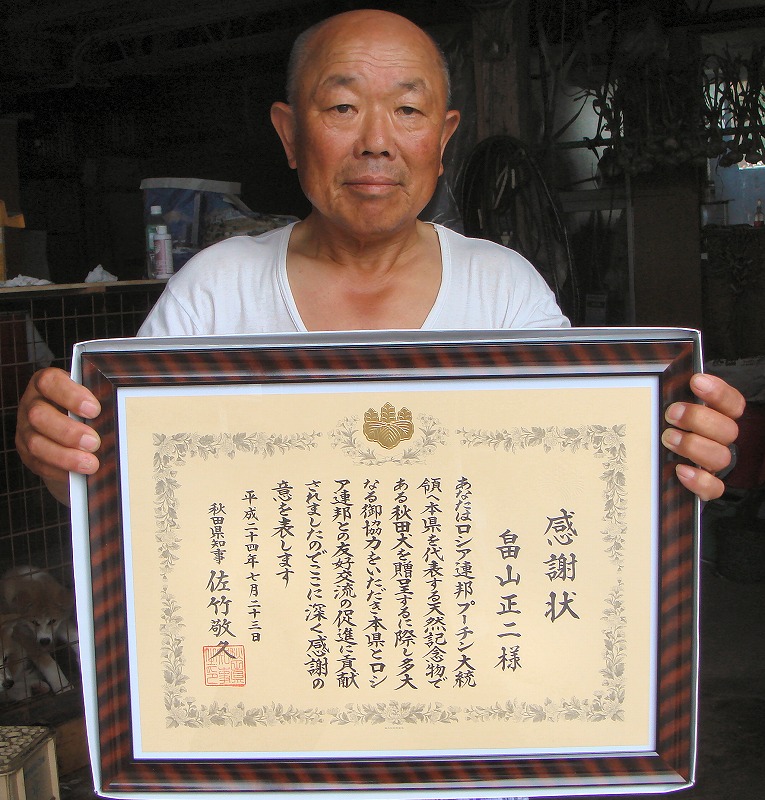 感謝状
畠山正二様
あなたはロシア連邦プーチン大統
領へ本県を代表する天然記念物で
ある秋田犬を贈呈するに際し多大
なる御協力をいただき本県とロシ
ア連邦との友好交流の促進に貢献
されましたのでここに深く感謝の
意を表します
平成二十四年七月二十三日
秋田県知事 佐竹敬久